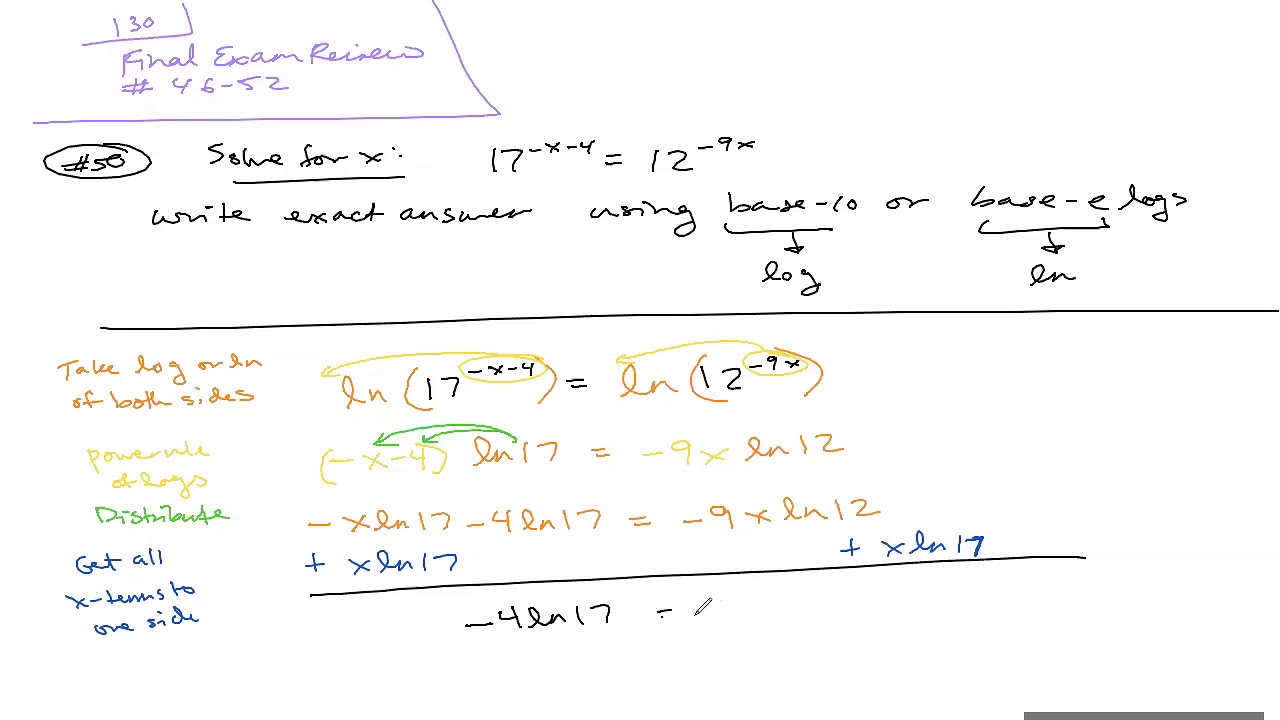 130
Final Exam Review
# 46-52
#50 Solve for x: 17^{-x-4} = 12^{-9x}
write exact answer using base-10 or base-e logs
log ln
Take log or ln
of both sides
ln(17^{-x-4}) = ln(12^{-9x})
power rule
of logs
(-x-4) ln17 = -9x ln12
Distribute
-xln17 -4ln17 = -9xln12
Get all
x-terms to
one side
+ xln17 + xln17
-4ln17 =